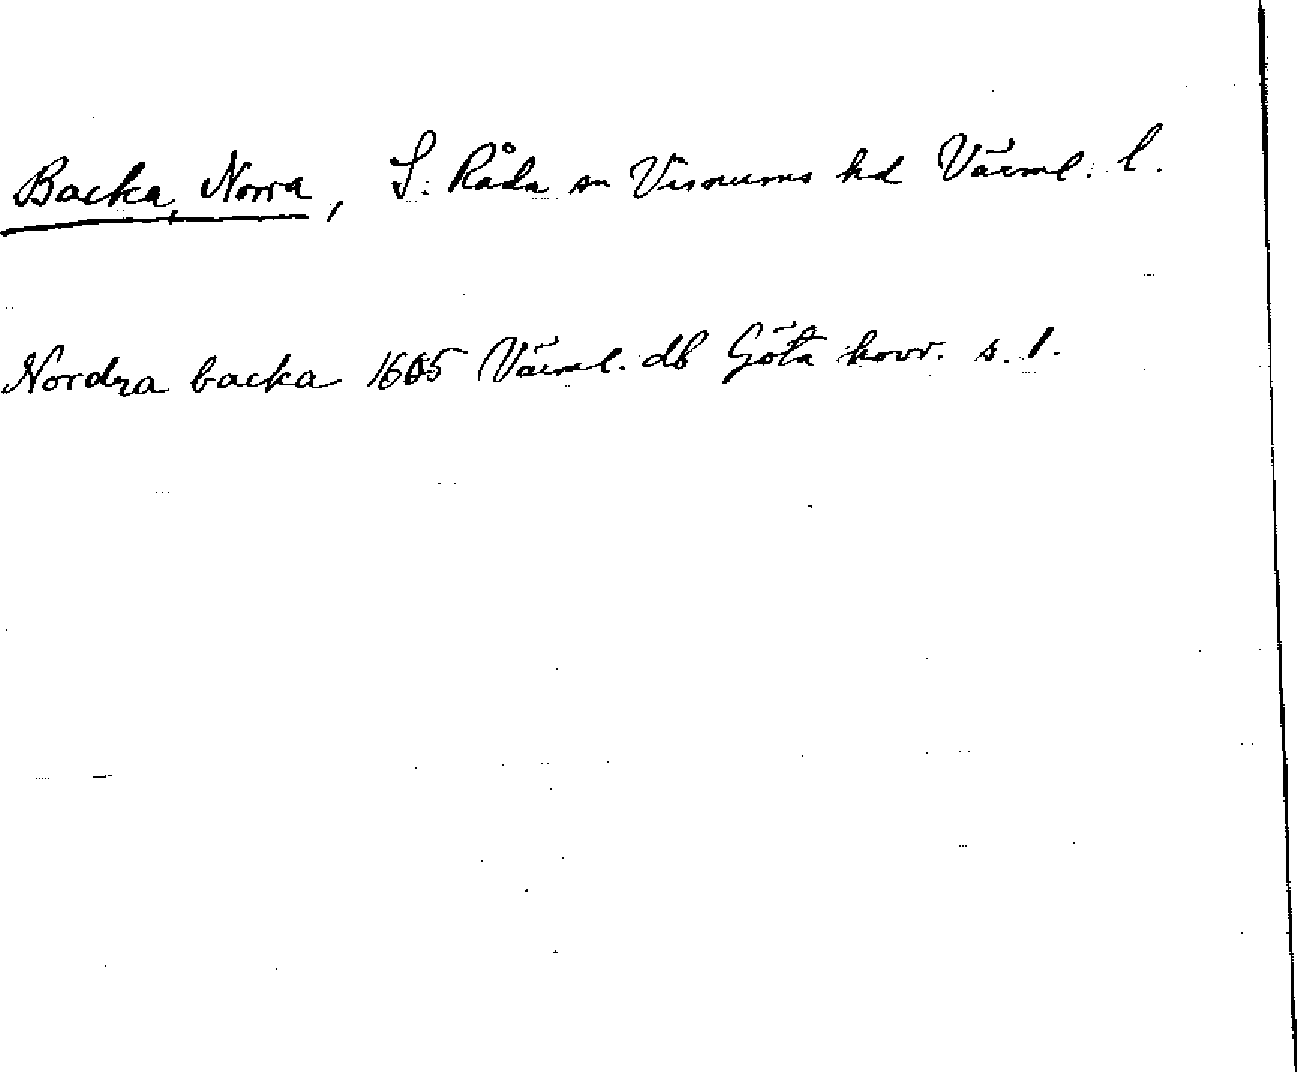 Backa, Norra, S. Råda sn Visnums hd Värml. l.
Nordra backa 1605 Värml. db Göta hovr. s. 1.